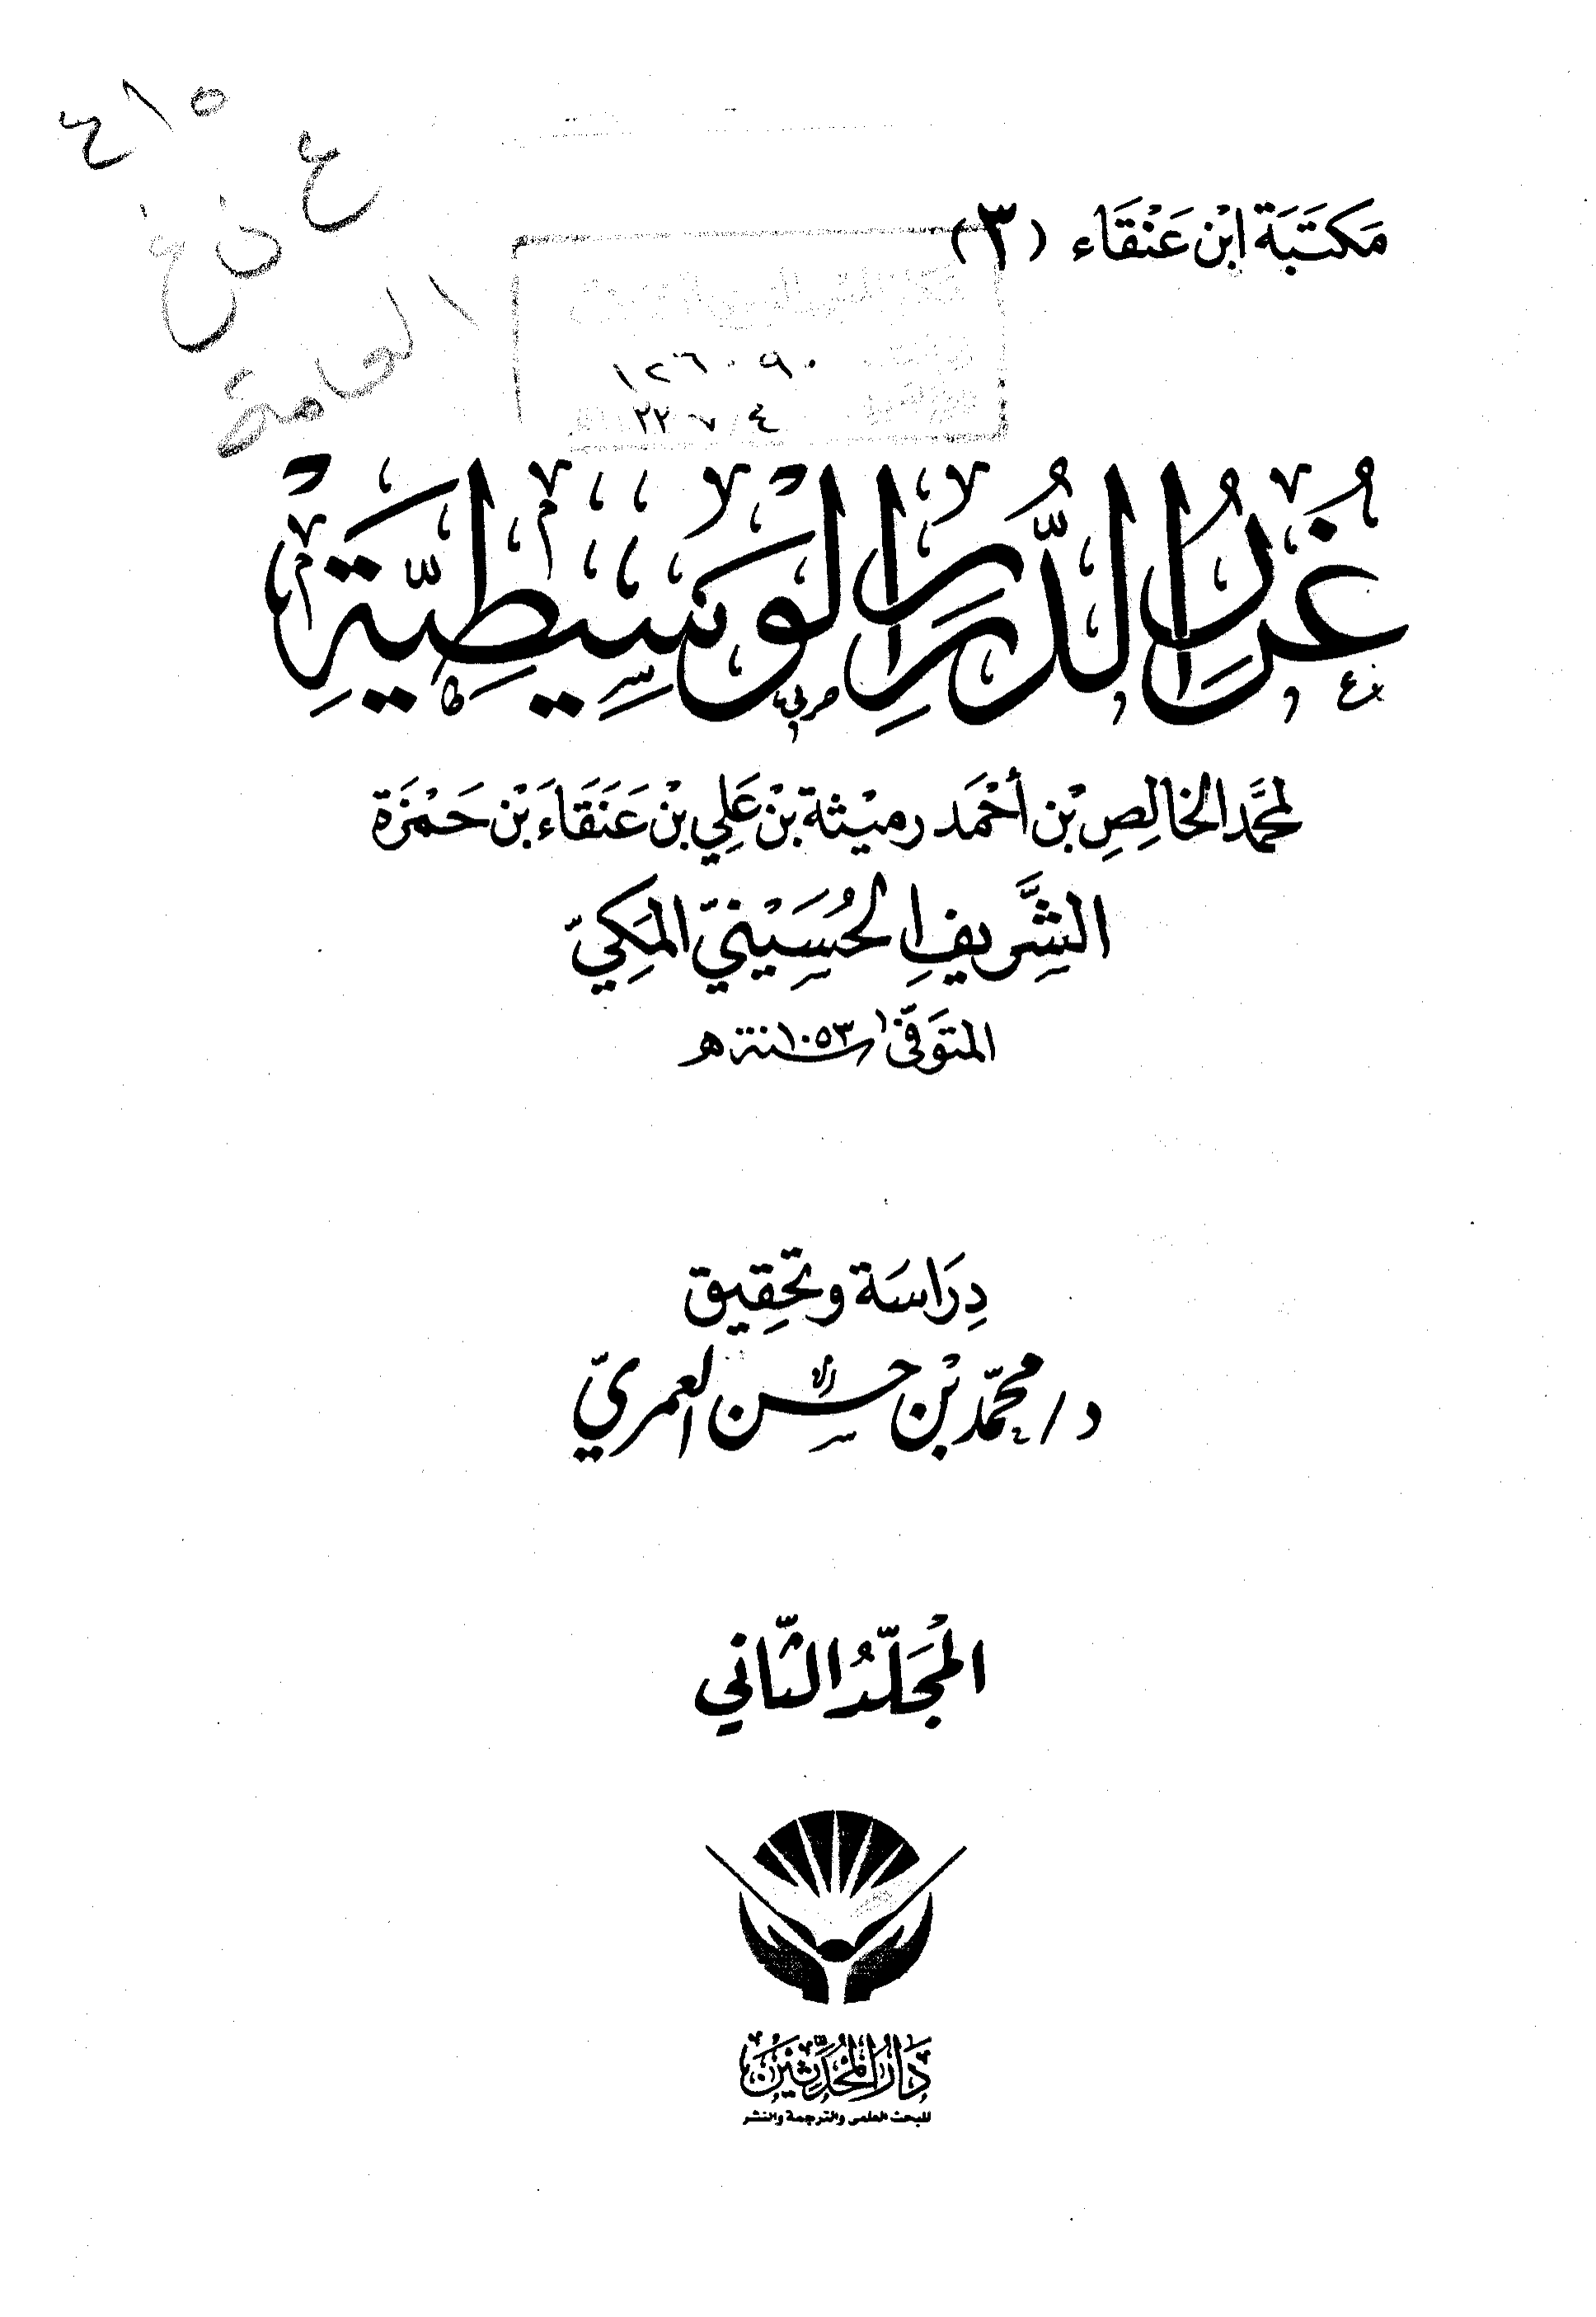 ٤١٥
ع ن غ
العامة
مَكتَبَة ابْن عَنْقَاء (٣)
١٢٦٠٩٠
غُرَرُ الدُّرَرِ الْوَسِيطِيَّةِ
لمحمَّد الخالِصِ بْن أحْمَد رميْثة بْن عَلِي بْن عَنَقَاءَ بْن حَمْزَة
الشَّرِيفِ الحُسَيْنِيّ المَكِيّ
المتوَفّى سنة ١٠٥٣هـ
دِرَاسَة وتحقِيق
د/ محمّد بْن حسن العمريّ
المْجَلّدُ الثّاني
دَارُ المُحَدِّثِينَ
للبحث العلمي والترجمة والنشر